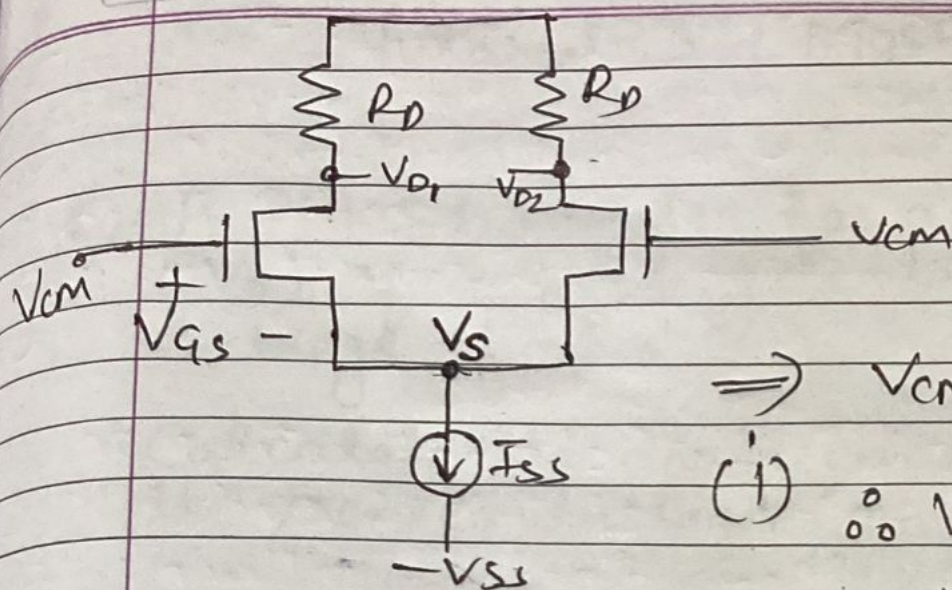 RD RD
VD1 VD2
VCM VCM
+
VGS - VS
⇒ VCM
ISS
(i) ∴ V
-VSS